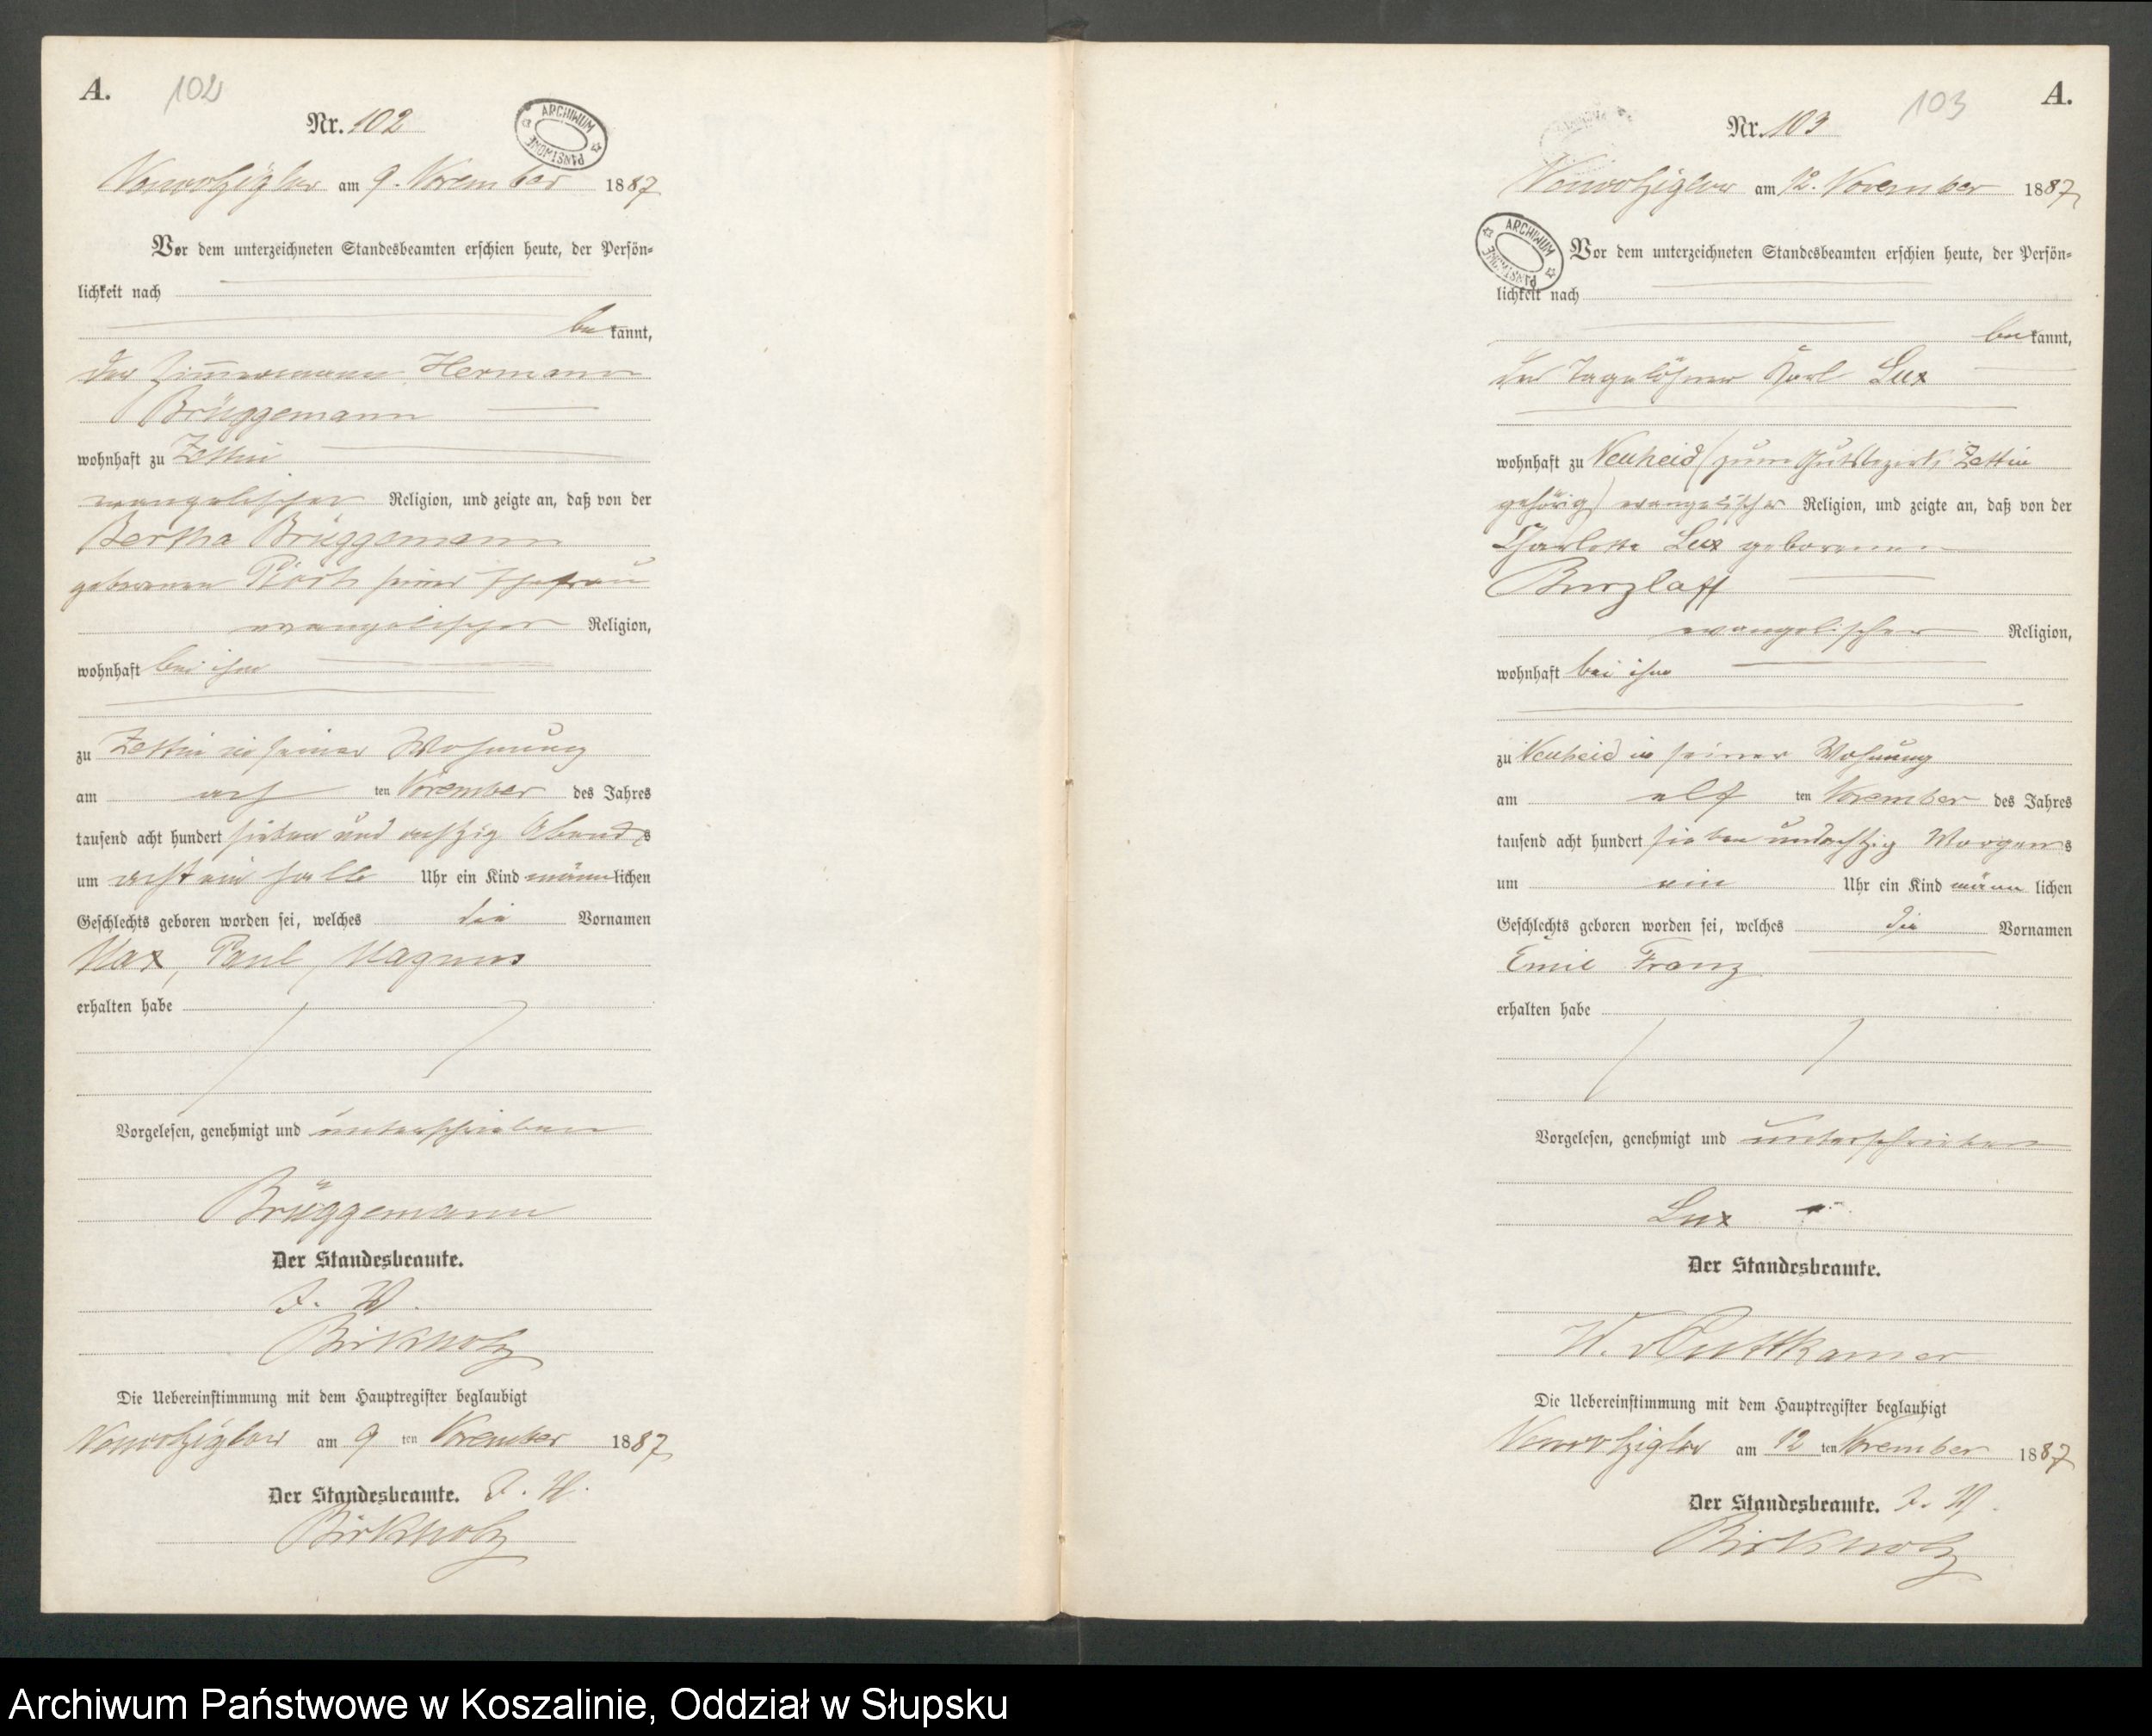 A.
102
Nr. 102
ARCHIWUM PAŃSTWOWE
am 9. November 1887
Vor dem unterzeichneten Standesbeamten erschien heute, der Persön-
lichkeit nach
bekannt,
der Zimmermann Hermann
Brüggemann
wohnhaft zu Zettin
evangelischer Religion, und zeigte an, daß von der
Bertha Brüggemann
geborenen seiner Ehefrau
evangelischer Religion,
wohnhaft bei ihm
zu Zettin in seiner Wohnung
am ach ten November des Jahres
tausend acht hundert sieben und achtzig Abends
um acht ein halb Uhr ein Kind männlichen
Geschlechts geboren worden sei, welches die Vornamen
Max, Paul, Magnus
erhalten habe
Vorgelesen, genehmigt und unterschrieben
Brüggemann
Der Standesbeamte.
J. V.
Birkholz
Die Uebereinstimmung mit dem Hauptregister beglaubigt
am 9 ten November 1887
Der Standesbeamte. J. V.
Birkholz
A.
103
Nr. 103
am 12. November 1887
ARCHIWUM PAŃSTWOWE
Vor dem unterzeichneten Standesbeamten erschien heute, der Persön-
lichkeit nach
bekannt,
der Tagelöhner Karl Lux
wohnhaft zu Neuheid (zum Gutsbezirk Zettin
gehörig) evangelischer Religion, und zeigte an, daß von der
Charlotte Lux geborenen
Burzlaff
evangelischer Religion,
wohnhaft bei ihm
zu Neuheid in seiner Wohnung
am elf ten November des Jahres
tausend acht hundert sieben und achtzig Morgens
um ein Uhr ein Kind männ lichen
Geschlechts geboren worden sei, welches die Vornamen
Emil Franz
erhalten habe
Vorgelesen, genehmigt und unterschrieben
Lux
Der Standesbeamte.
W. v Puttkamer
Die Uebereinstimmung mit dem Hauptregister beglaubigt
am 12 ten November 1887
Der Standesbeamte. J. V.
Birkholz
Archiwum Państwowe w Koszalinie, Oddział w Słupsku